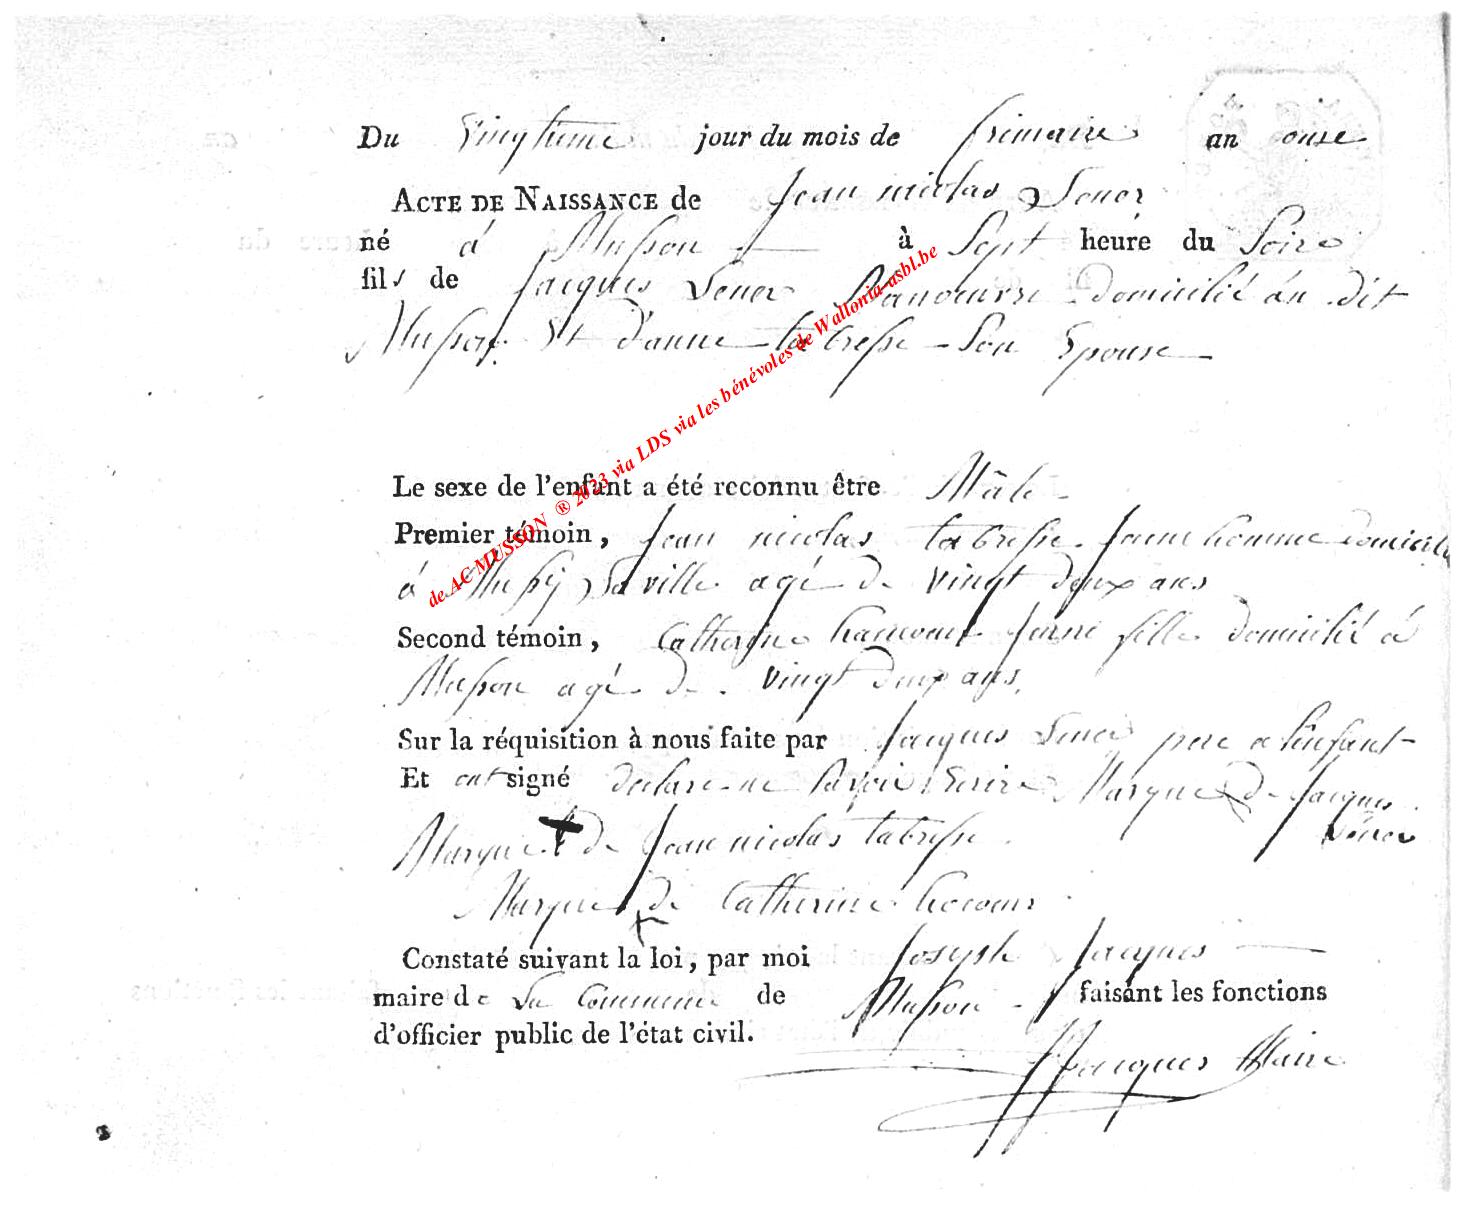 Du Vingtieme jour du mois de frimaire an onse
ACTE DE NAISSANCE de Jean nicolas Lener
né à Musson à Sept heure du Soire
fils de Jacques Lener Manoeuvre domicilié au dit
Musson Et d'anne tabresse Son Epouse
Le sexe de l'enfant a été reconnu être Mâle
Premier témoin, Jean nicolas tabresse Jeune homme domicilié
à Mussy La ville agé de vingt deux ans
Second témoin, Catherine Jeune fille domicilié à
Musson agé de vingt deux ans
Sur la réquisition à nous faite par Jacques Lener pere a l'enfant
Et ont signé declare ne Savoir Ecrire Marque de Jacques
Lener
Marque de Jean nicolas tabresse
Marque de Catherine hocour
Constaté suivant la loi, par moi Joseph Jacques
maire de La Commune de Musson faisant les fonctions
d'officier public de l'état civil.
JJacques Maire
de AC MUSSON ® 2023 via LDS via les bénévoles de Wallonia-asbl.be